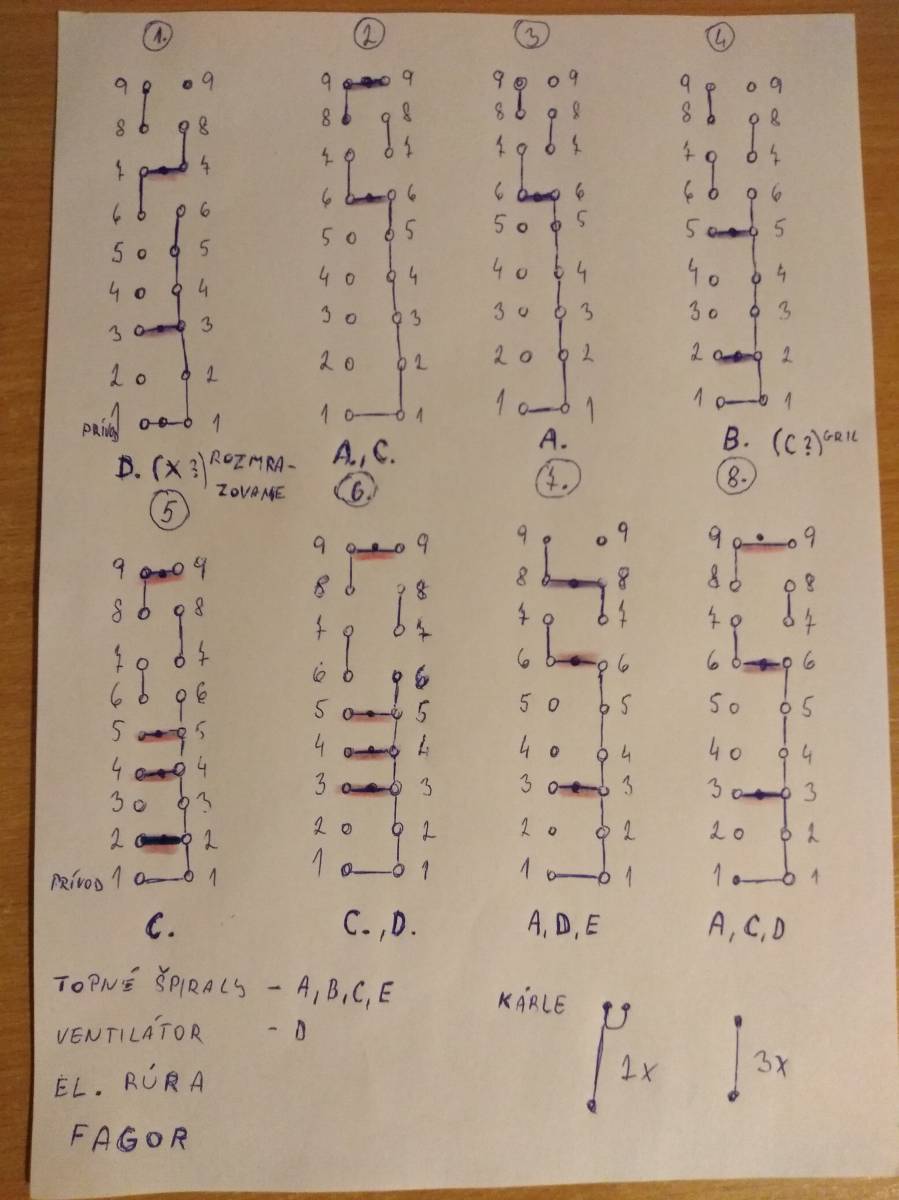 1. 2 3 4
9 9 9 9 9 9 9 9
8 8 8 8 8 8 8 8
7 7 7 7 7 7 7 7
6 6 6 6 6 6 6 6
5 5 5 5 5 5 5 5
4 4 4 4 4 4 4 4
3 3 3 3 3 3 3 3
2 2 2 2 2 2 2 2
PRÍVOD 1 1 1 1 1 1 1 1
D. (X?) ROZMRA-
ZOVANIE
A., C.
A.
B. (C?) GRIL
5 6. 7. 8.
9 9 9 9 9 9 9 9
8 8 8 8 8 8 8 8
7 7 7 7 7 7 7 7
6 6 6 6 6 6 6 6
5 5 5 5 5 5 5 5
4 4 4 4 4 4 4 4
3 3 3 3 3 3 3 3
2 2 2 2 2 2 2 2
PRÍVOD 1 1 1 1 1 1 1 1
C. C., D. A, D, E A, C, D
TOPNÉ ŠPIRALY - A, B, C, E
VENTILÁTOR - D
EL. RÚRA
FAGOR
KÁBLE
1x 3x